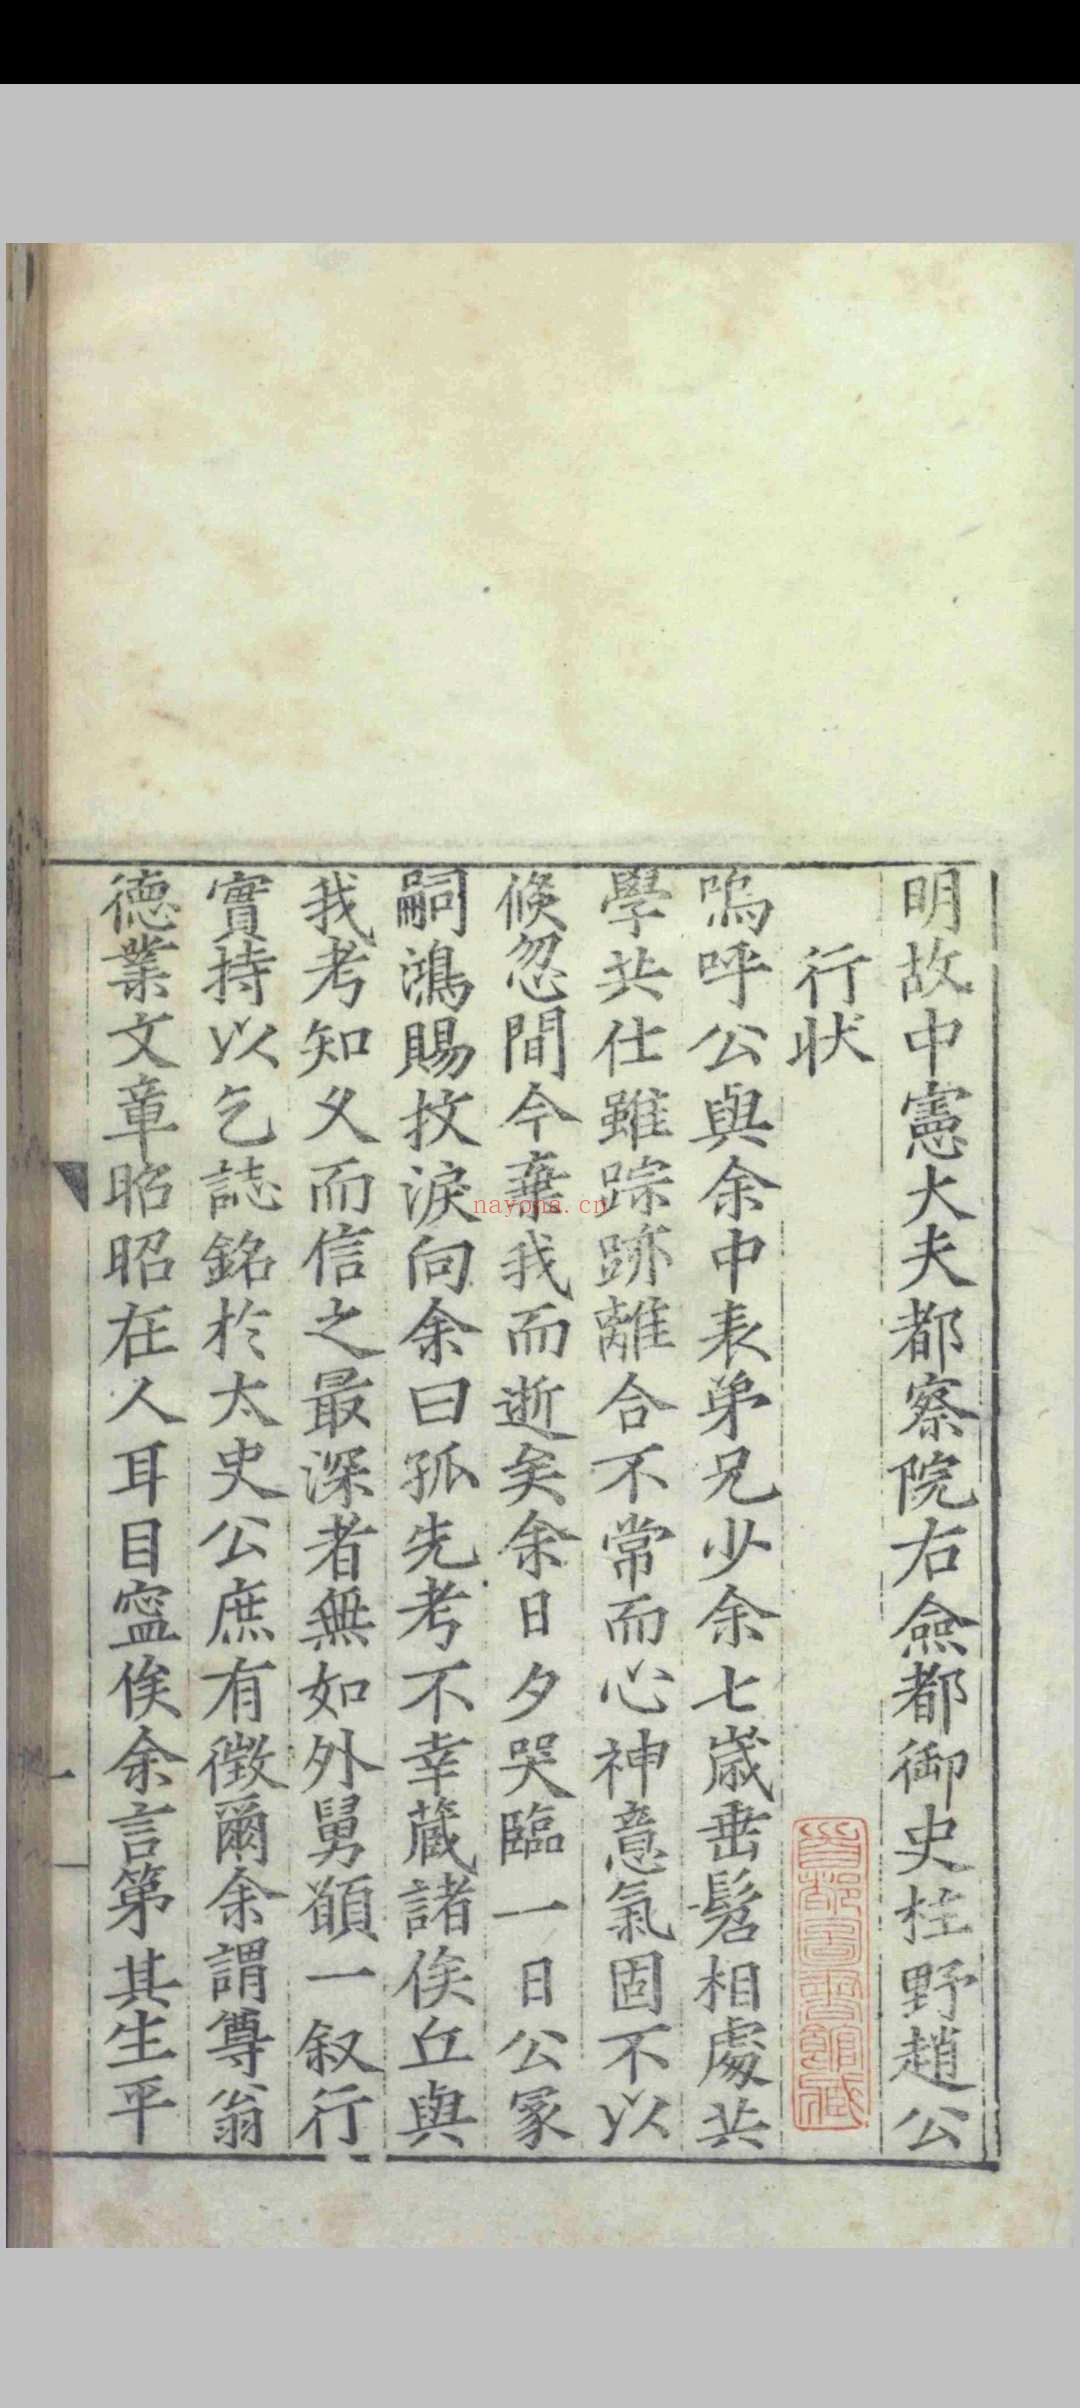 明故中憲大夫都察院右僉都御史桂野趙公
行狀
嗚呼公與余中表弟兄少余七歲垂髫相處共
學共仕雖踪跡離合不常而心神意氣固不以
倐忽間今棄我而逝矣余日夕哭臨一日公冢
嗣鴻賜抆淚向余曰孤先考不幸蕆諸俟丘與
我考知久而信之最深者無如外舅願一叙行
實持以乞誌銘於太史公庶有徵爾余謂尊翁
德業文章昭昭在人耳目寍俟余言第其生平
首都圖書館藏
nayona.cn